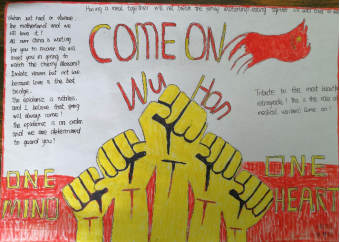 Having a meal together will not defeat the
COME ON
Wu Han
Wuhan
the motherland and we
will love it!
All over China is waiting
for you to recover. We will
meet you in spring to
watch the cherry blossom!
Isolate viruses but not love,
because love is the best
bridge.
The epidemic is ruthless,
and I believe that spring
will always come!
The epidemic is an order
and we are determined
to guard you!
Tribute to the most beautiful
! This is the role of
medical workers! Come on!
ONE
MIND
ONE
HEART